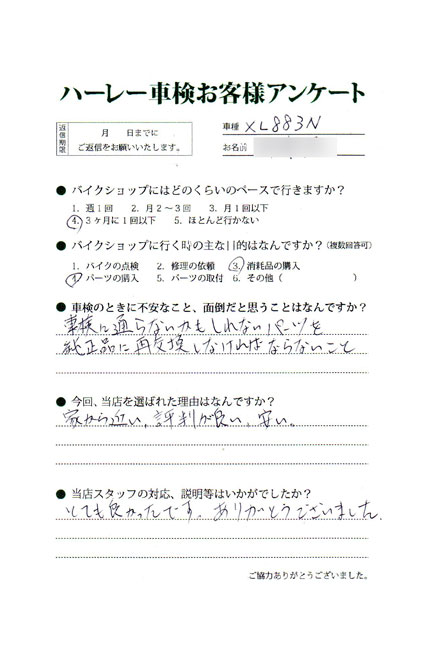 ハーレー車検お客様アンケート
返信期限
月　日までに
ご返信をお願いいたします。
車種 XL883N
お名前
● バイクショップにはどのくらいのペースで行きますか？
1. 週1回　2. 月2～3回　3. 月1回以下
4. 3ヶ月に1回以下　5. ほとんど行かない
● バイクショップに行く時の主な目的はなんですか？(複数回答可)
1. バイクの点検　2. 修理の依頼　3. 消耗品の購入
4. パーツの購入　5. パーツの取付　6. その他（　　　）
● 車検のときに不安なこと、面倒だと思うことはなんですか？
車検に通らないかもしれないパーツを
純正品に再交換しなければならないこと
● 今回、当店を選ばれた理由はなんですか？
家から近い、評判が良い、安い。
● 当店スタッフの対応、説明等はいかがでしたか？
とても良かったです。ありがとうございました。
ご協力ありがとうございました。